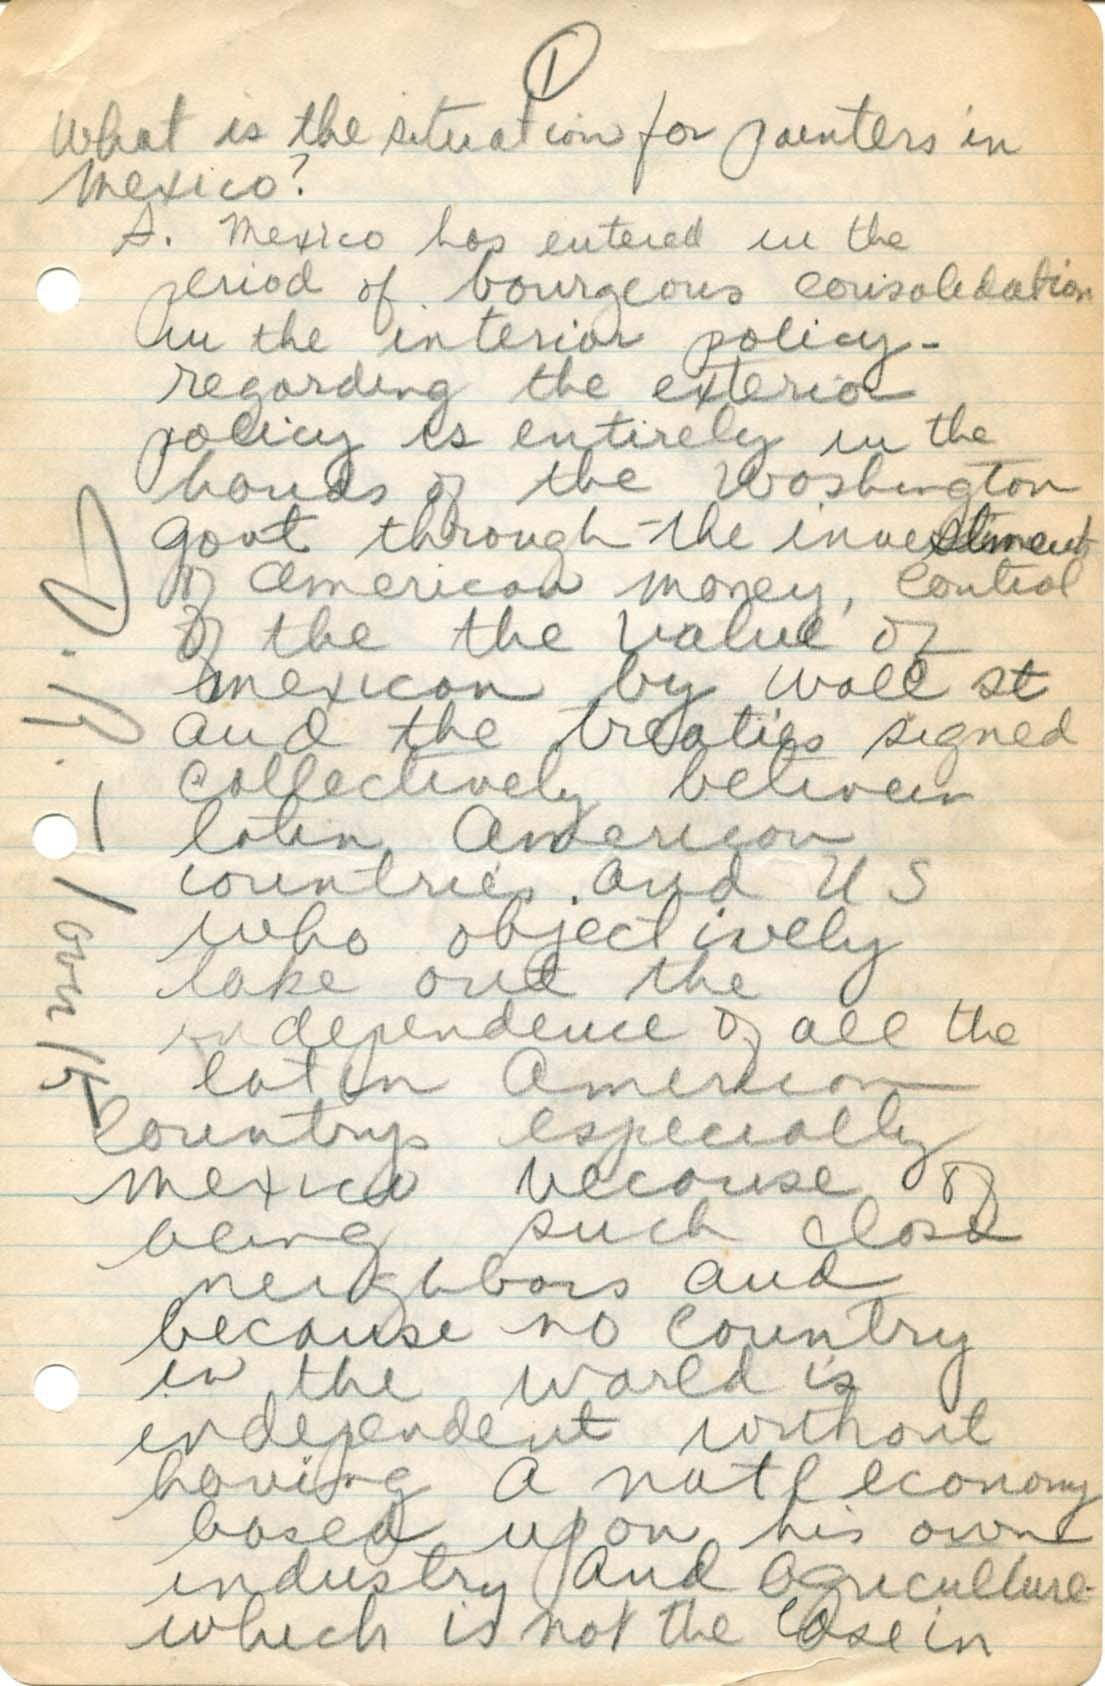 1
What is the situation for painters in
Mexico?
A. Mexico has entered in the
period of bourgeous consoledation
in the interior policy -
regarding the exterior
policy is entirely in the
hands of the Washington
govt through the investiment
of American money, control
of the the value of
mexican by Wall st
and the treaties signed
collectively between
latin American
countries and US
who objectively
take out the
independence of all the
latin American
countrys especially
Mexico because of
being such close
neighbors and
because no country
in the world is
independent without
having a natl economy
based upon his own
industry and agriculture
which is not the case in